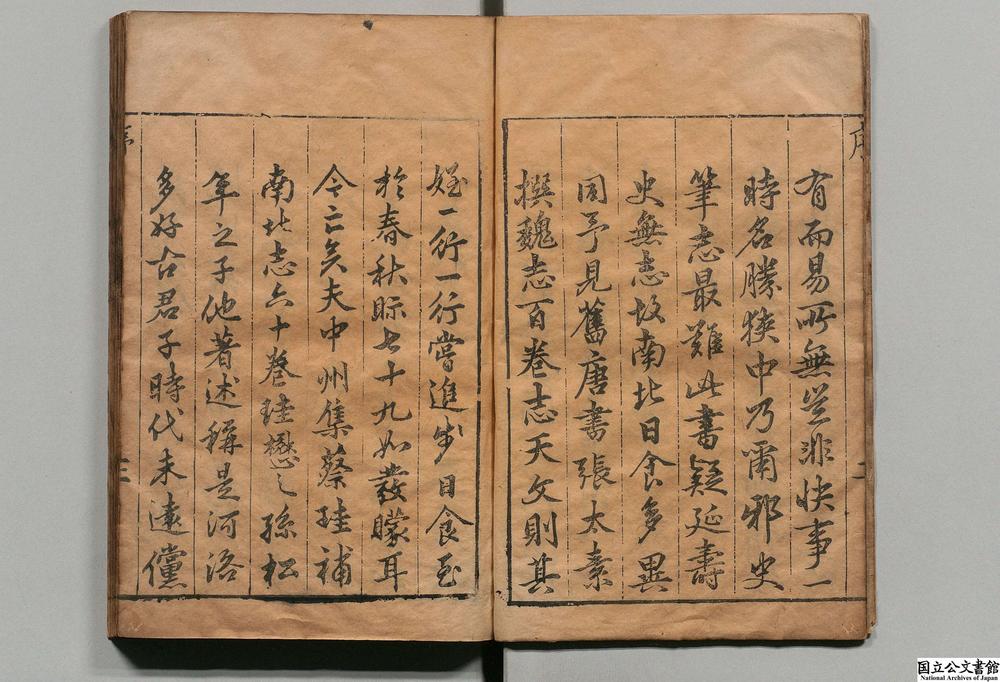 序 二
有而易所無豈非快事一
時名勝狹中乃爾邪史
筆志最難此書疑延壽
史無志故南北日食多異
同予見舊唐書張太素
撰魏志百卷志天文則其
姪一行一行嘗進步日食至
於春秋眎七十九如發矇耳
今亡矣夫中州集蔡珪補
南北志六十卷珪懋之孫松
年之子他著述稱是河洛
多好古君子時代未遠儻
三
国立公文書館
National Archives of Japan